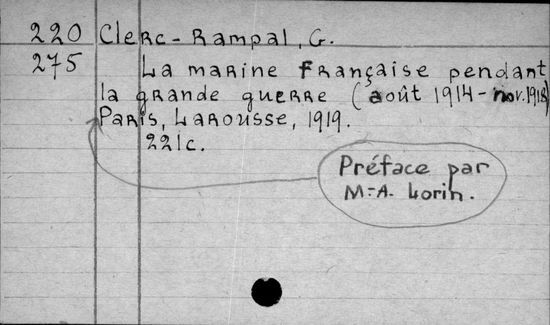 220 Clerc-Rampal, G.
275 La marine française pendant
la grande guerre (août 1914-nov.1918)
Paris, Larousse, 1919.
221c.
Préface par
M-A. Lorin.